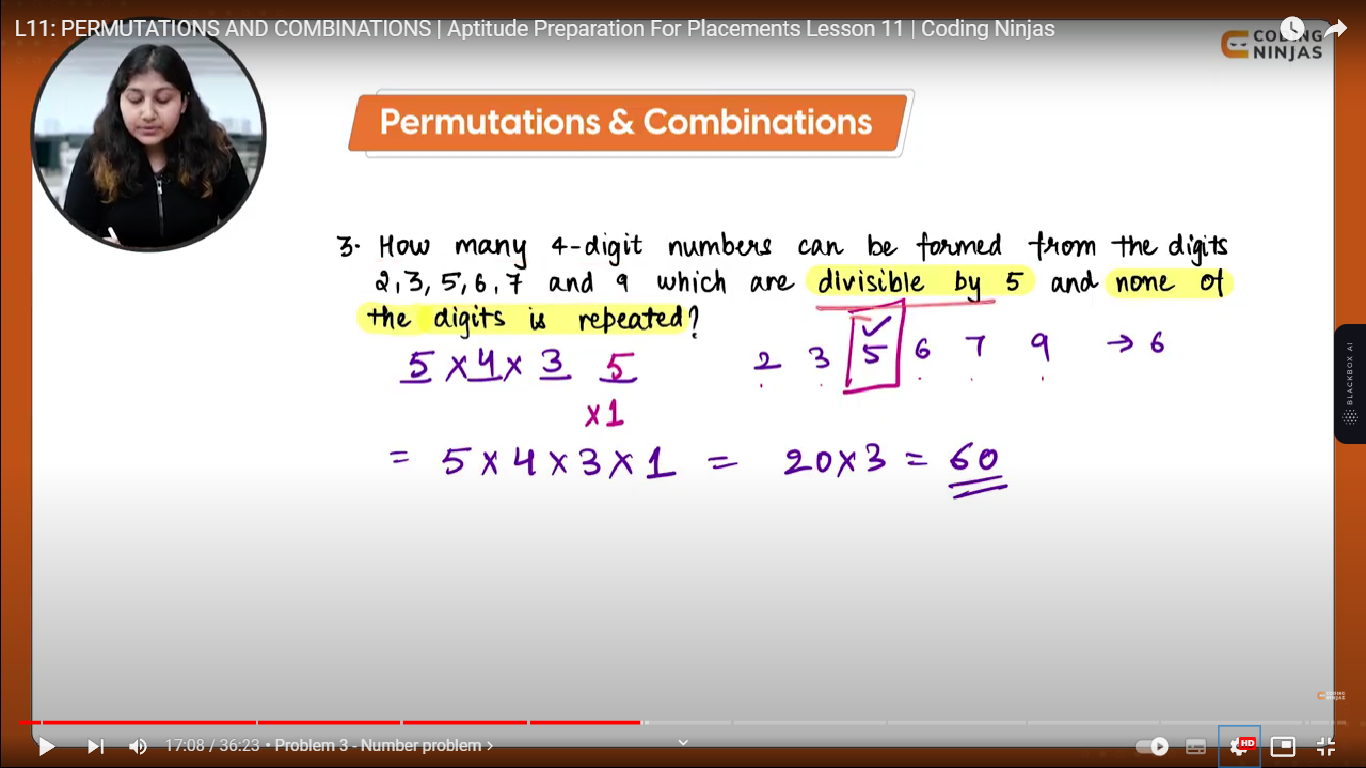 L11: PERMUTATIONS AND COMBINATIONS | Aptitude Preparation For Placements Lesson 11 | Coding Ninjas
CODING
NINJAS
Permutations & Combinations
3. How many 4-digit numbers can be formed from the digits
2,3,5,6,7 and 9 which are divisible by 5 and none of
the digits is repeated?
5 x 4 x 3 5
2 3 5 6 7 9 → 6
x1
= 5 x 4 x 3 x 1 = 20 x 3 = 60
BLACKBOX AI
CODING
NINJAS
17:08 / 36:23 • Problem 3 - Number problem
HD